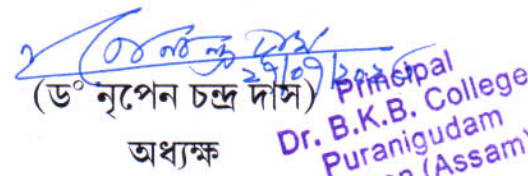 (ড° নৃপেন চন্দ্ৰ দাস)
অধ্যক্ষ
Principal
Dr. B.K.B. College
Puranigudam
(Assam)